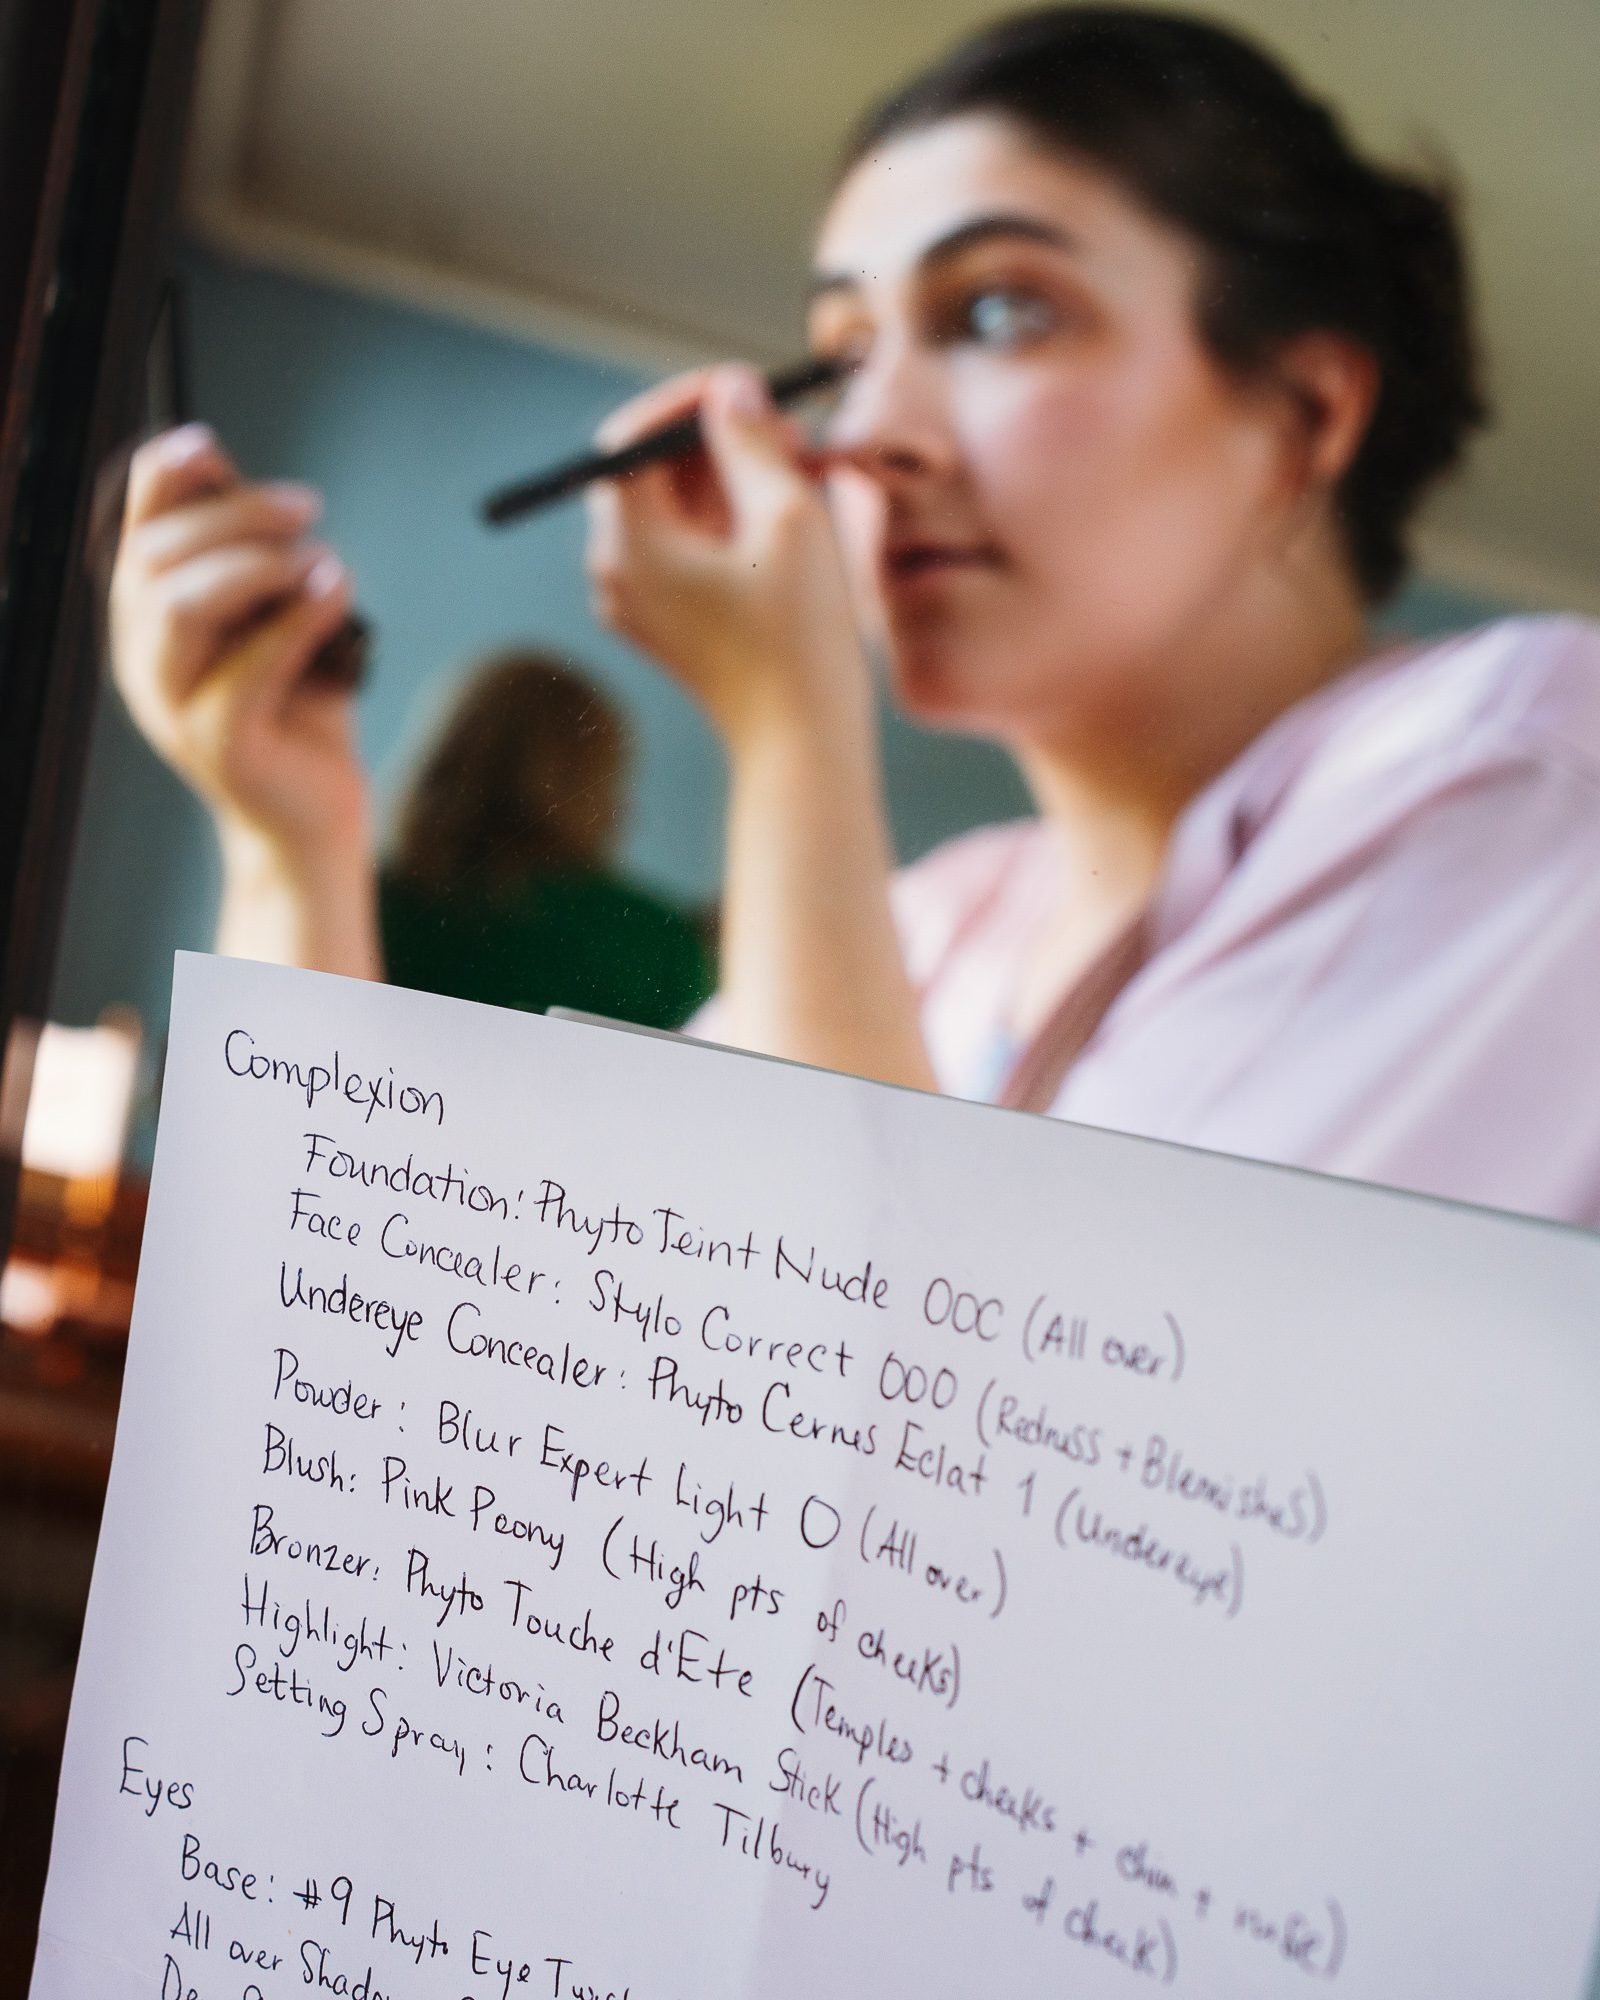 Complexion
Foundation: Phyto Teint Nude 00C (All over)
Face Concealer: Stylo Correct 000 (Redness + Blemishes)
Undereye Concealer: Phyto Cernes Eclat 1 (Undereye)
Powder: Blur Expert Light 0 (All over)
Blush: Pink Peony (High pts of cheeks)
Bronzer: Phyto Touche d'Ete (Temples + cheeks + chin +
Highlight: Victoria Beckham Stick (High pts of cheek)
Setting Spray: Charlotte Tilbury
Eyes
Base: #9 Phyto Eye Twist
All over